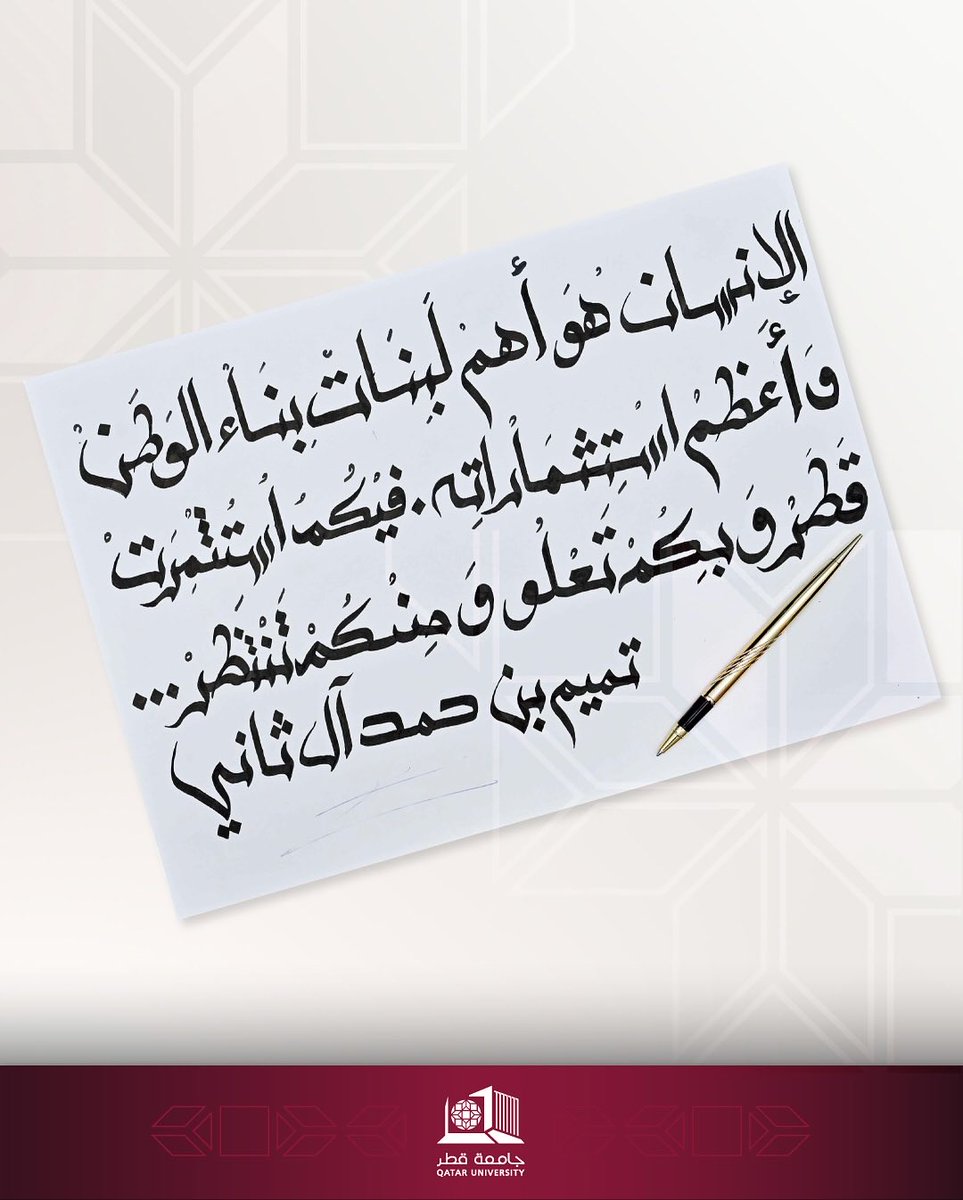 الإنسان هُوَ أهمْ لَبِنَاتْ بِنَاءُ الوَطَنْ
وَأعَظمْ اسْتِثمَارُاتِه. فيْكُمُ أُسْتُثْمِرَتْ
قَطَرْ وَ بِكِمْ تَعْلُو وَ مِنْكُمْ تَنْتَظَرْ...
تميم بن حمد آل ثاني
جامعة قطر
QATAR UNIVERSITY